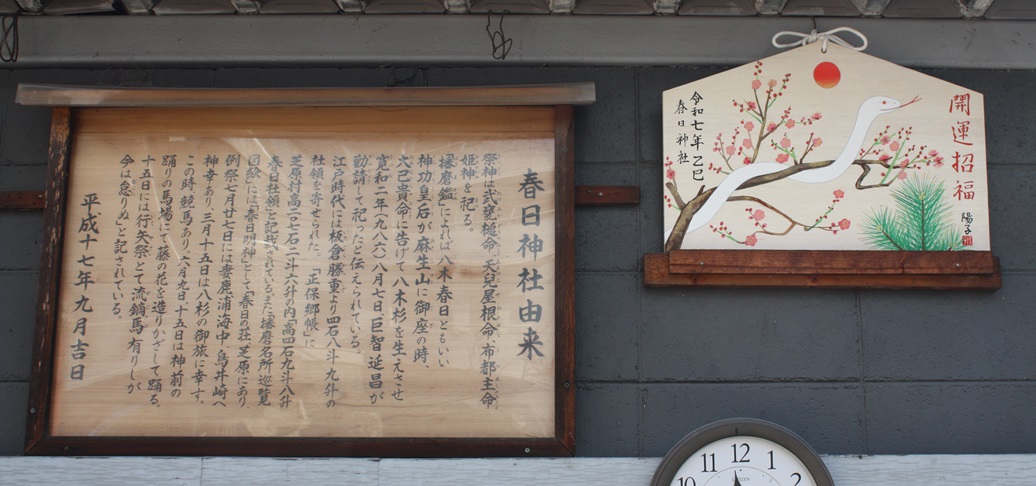 春日神社由来
祭神は武甕槌命、天見屋根命、布都主命、
姫神を祀る。
播磨鑑によれば八木春日ともいい
神功皇后が麻生山に御座の時、
大己貴命に告げて八木杉を生えさせ
寛和二年(九八六)八月七日、巨智延昌が
勧請して祀ったと伝えられている。
江戸時代には板倉勝重より四石八斗九升の
社領を寄せられた。「正保郷帳」に
芝原村高二〇七石二斗六升の内「高四石九斗八升
春日社領」と記載されているまた播磨名所巡覧
図絵」には「春日明神」として春日の荘、芝原にあり、
例祭七月廿七日には妻鹿浦海中、鳥井崎へ
神幸あり、三月十五日は八杉の御旅に幸す。
この時、競馬あり、六月九日、十五日は神前の
踊りの馬場にて藤の花を造りかざして踊る。
十五日には行矢祭とて流鏑馬有りしが
今は怠りぬ」と記されている。
平成十七年九月吉日
開運招福
陽子
令和七年乙巳
春日神社
10
11
12
1
2